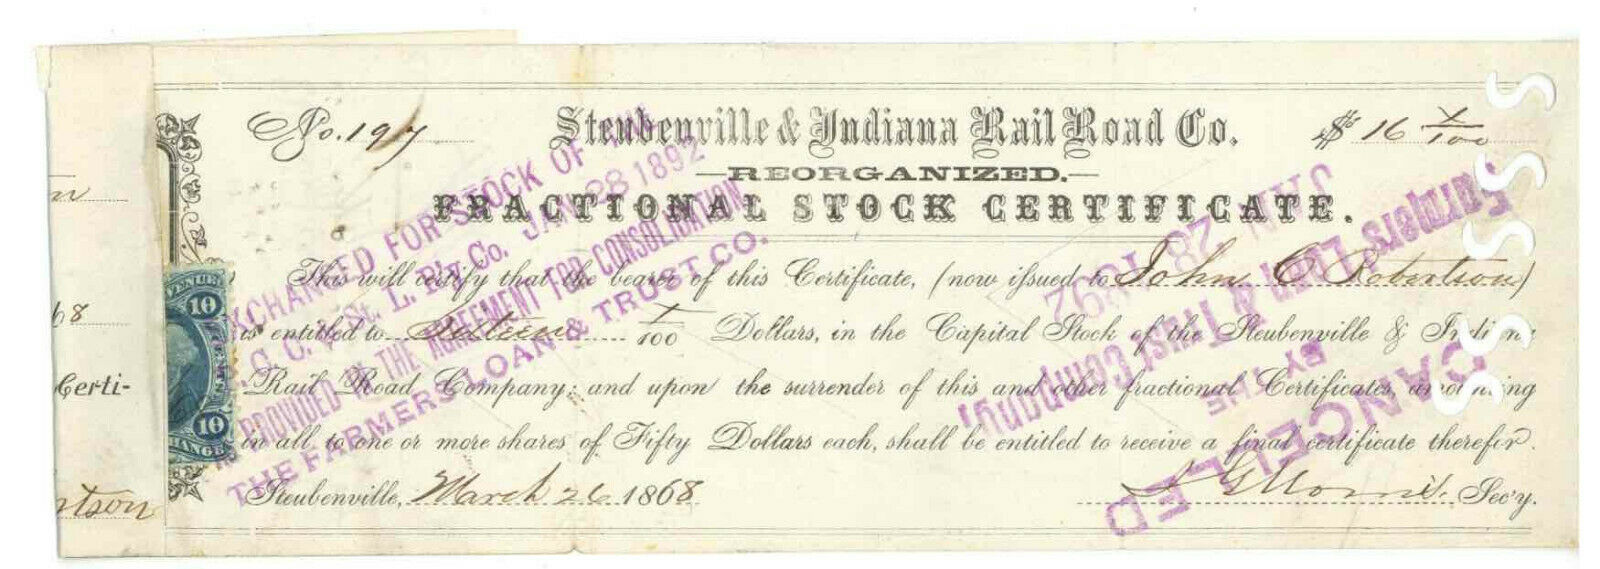 No. 197 Steubenville & Indiana Rail Road Co. $ 16 x/100
—REORGANIZED.—
FRACTIONAL STOCK CERTIFICATE.
This will certify that the bearer of this Certificate, (now issued to John C Robertson)
is entitled to Sixteen x/100 Dollars, in the Capital Stock of the Steubenville & Indiana
Rail Road Company; and upon the surrender of this and other fractional Certificates, amounting
in all, to one or more shares of Fifty Dollars each, shall be entitled to receive a final certificate therefor.
Steubenville, March 26 1868 Sec'y.
EXCHANGED FOR STOCK OF THE
C. C. & St. L. R'y Co. JAN 28 1892
AS PROVIDED IN THE AGREEMENT FOR CONSOLIDATION
THE FARMERS LOAN & TRUST CO.
CANCELLED
BY THE
Farmers Loan & Trust Company
JAN 28 1892
10
10
68
Certi-
rtson